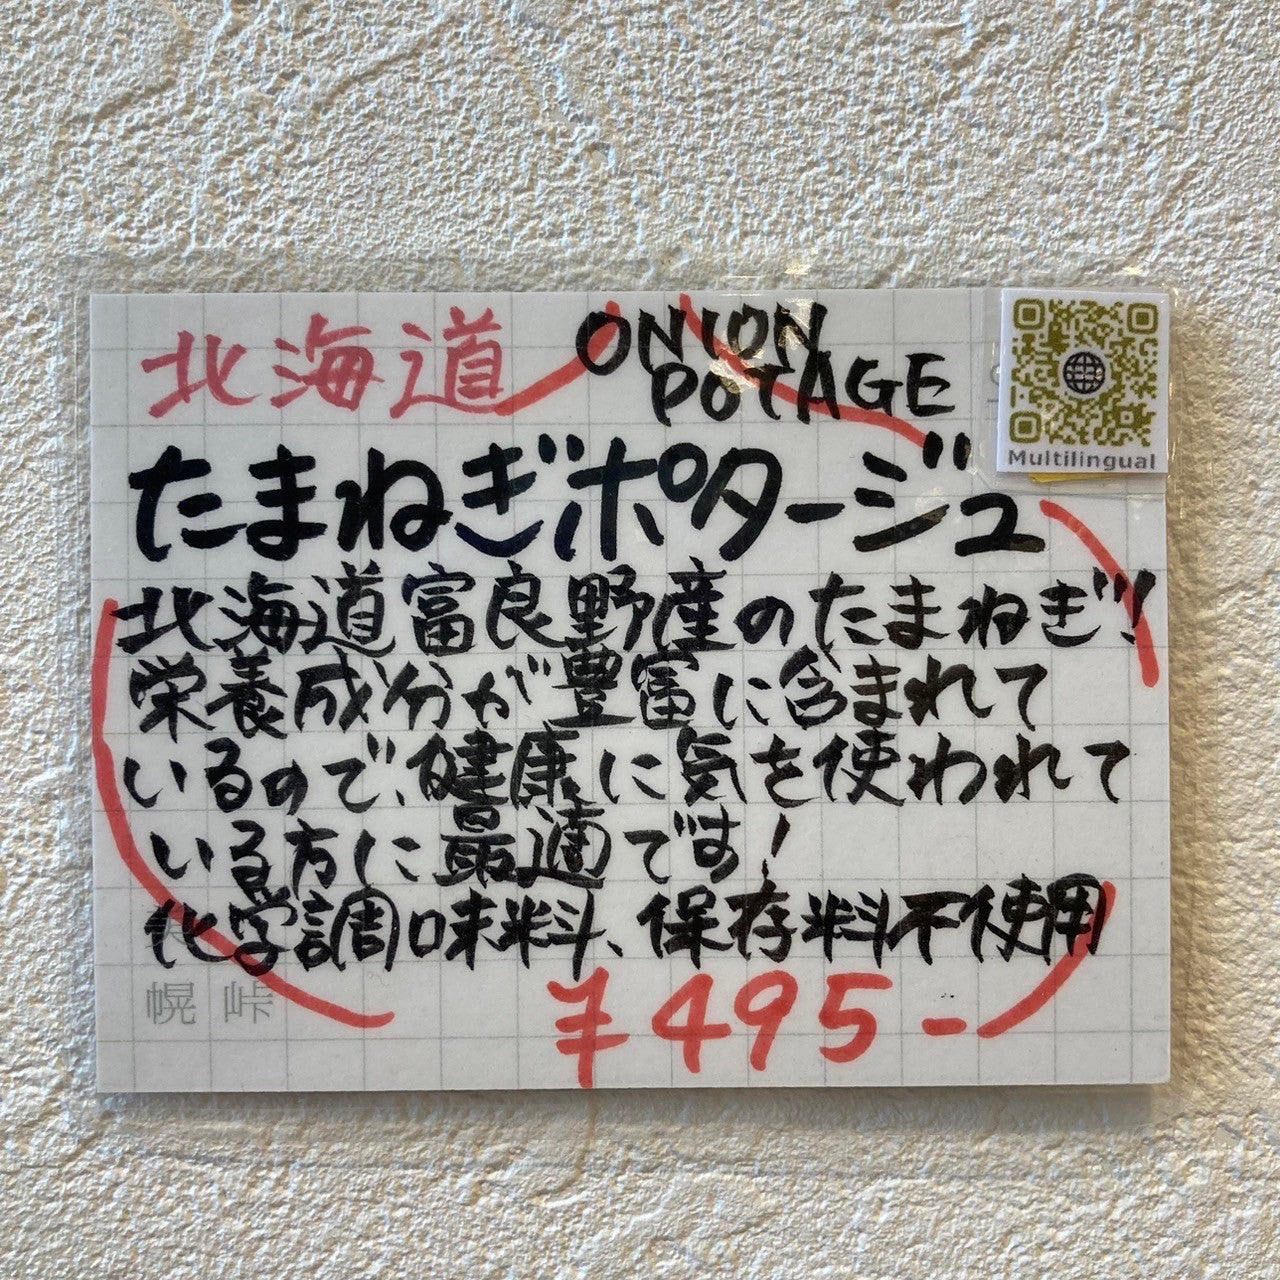 北海道
ONION
POTAGE
Multilingual
たまねぎポタージュ
北海道富良野産のたまねぎ!!
栄養成分が豊富に含まれて
いるので、健康に気を使われて
いる方に最適です!
化学調味料、保存料不使用
幌 峠
¥495-